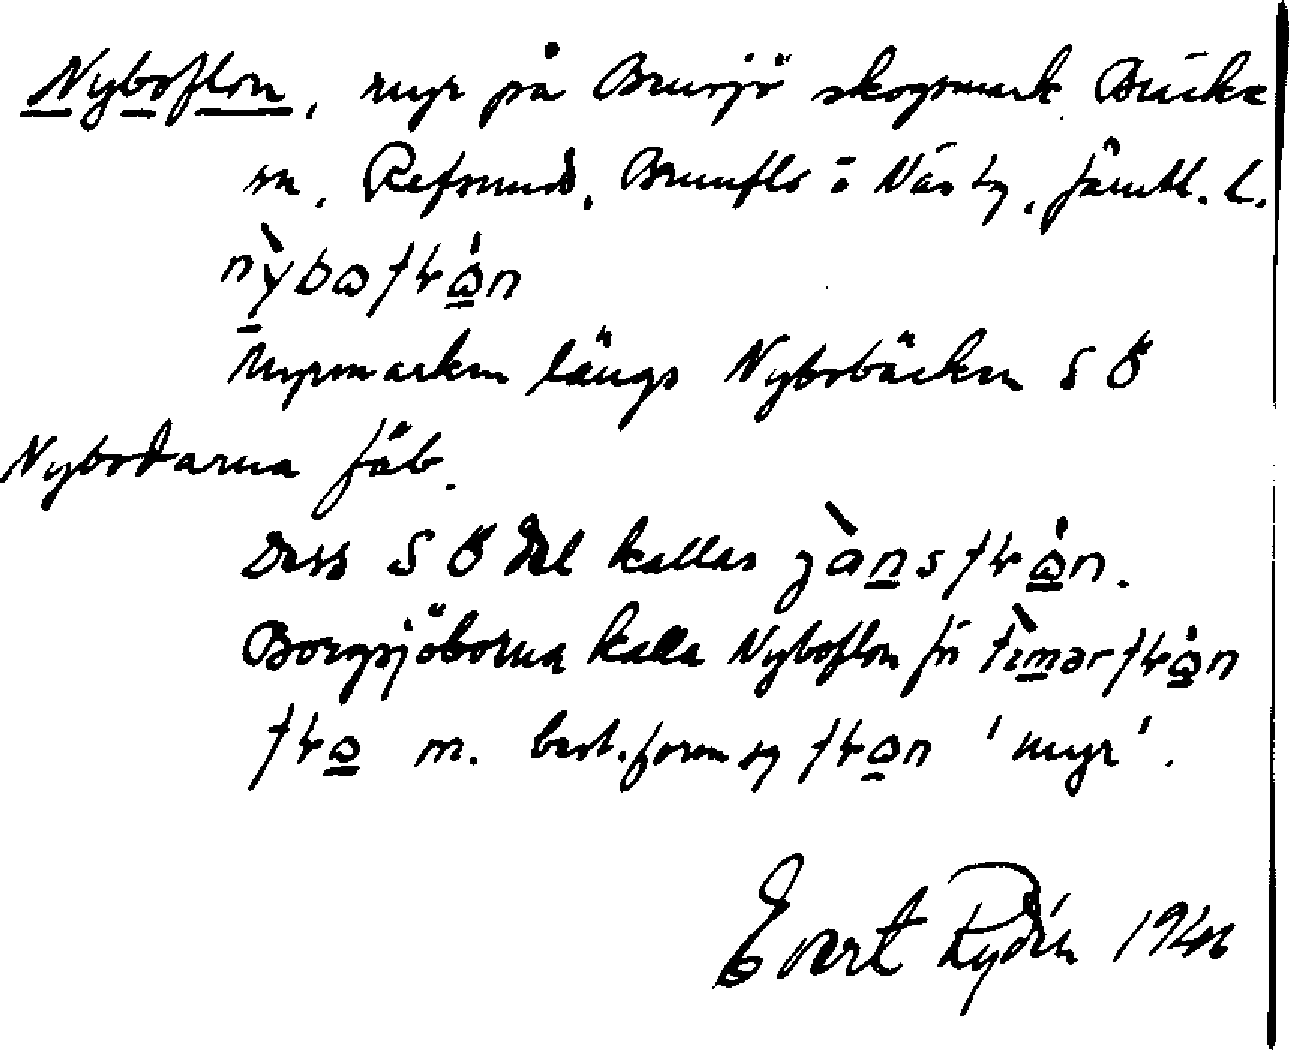 Nyboflon, myr på Bensjö skogsmark Bräcke
sn, Refsund, Brunflo o Näs tg, Jämtl. l.
nỳboflån
Myrmarken längs Nybobäcken S Ö
Nybodarna fäb.
Dess S Ö del kallas jànsflån.
Borgsjöborna kalla Nyboflon för tìmərflån
flo m. best. form sg flon 'myr'.
Evert Rydén 1946